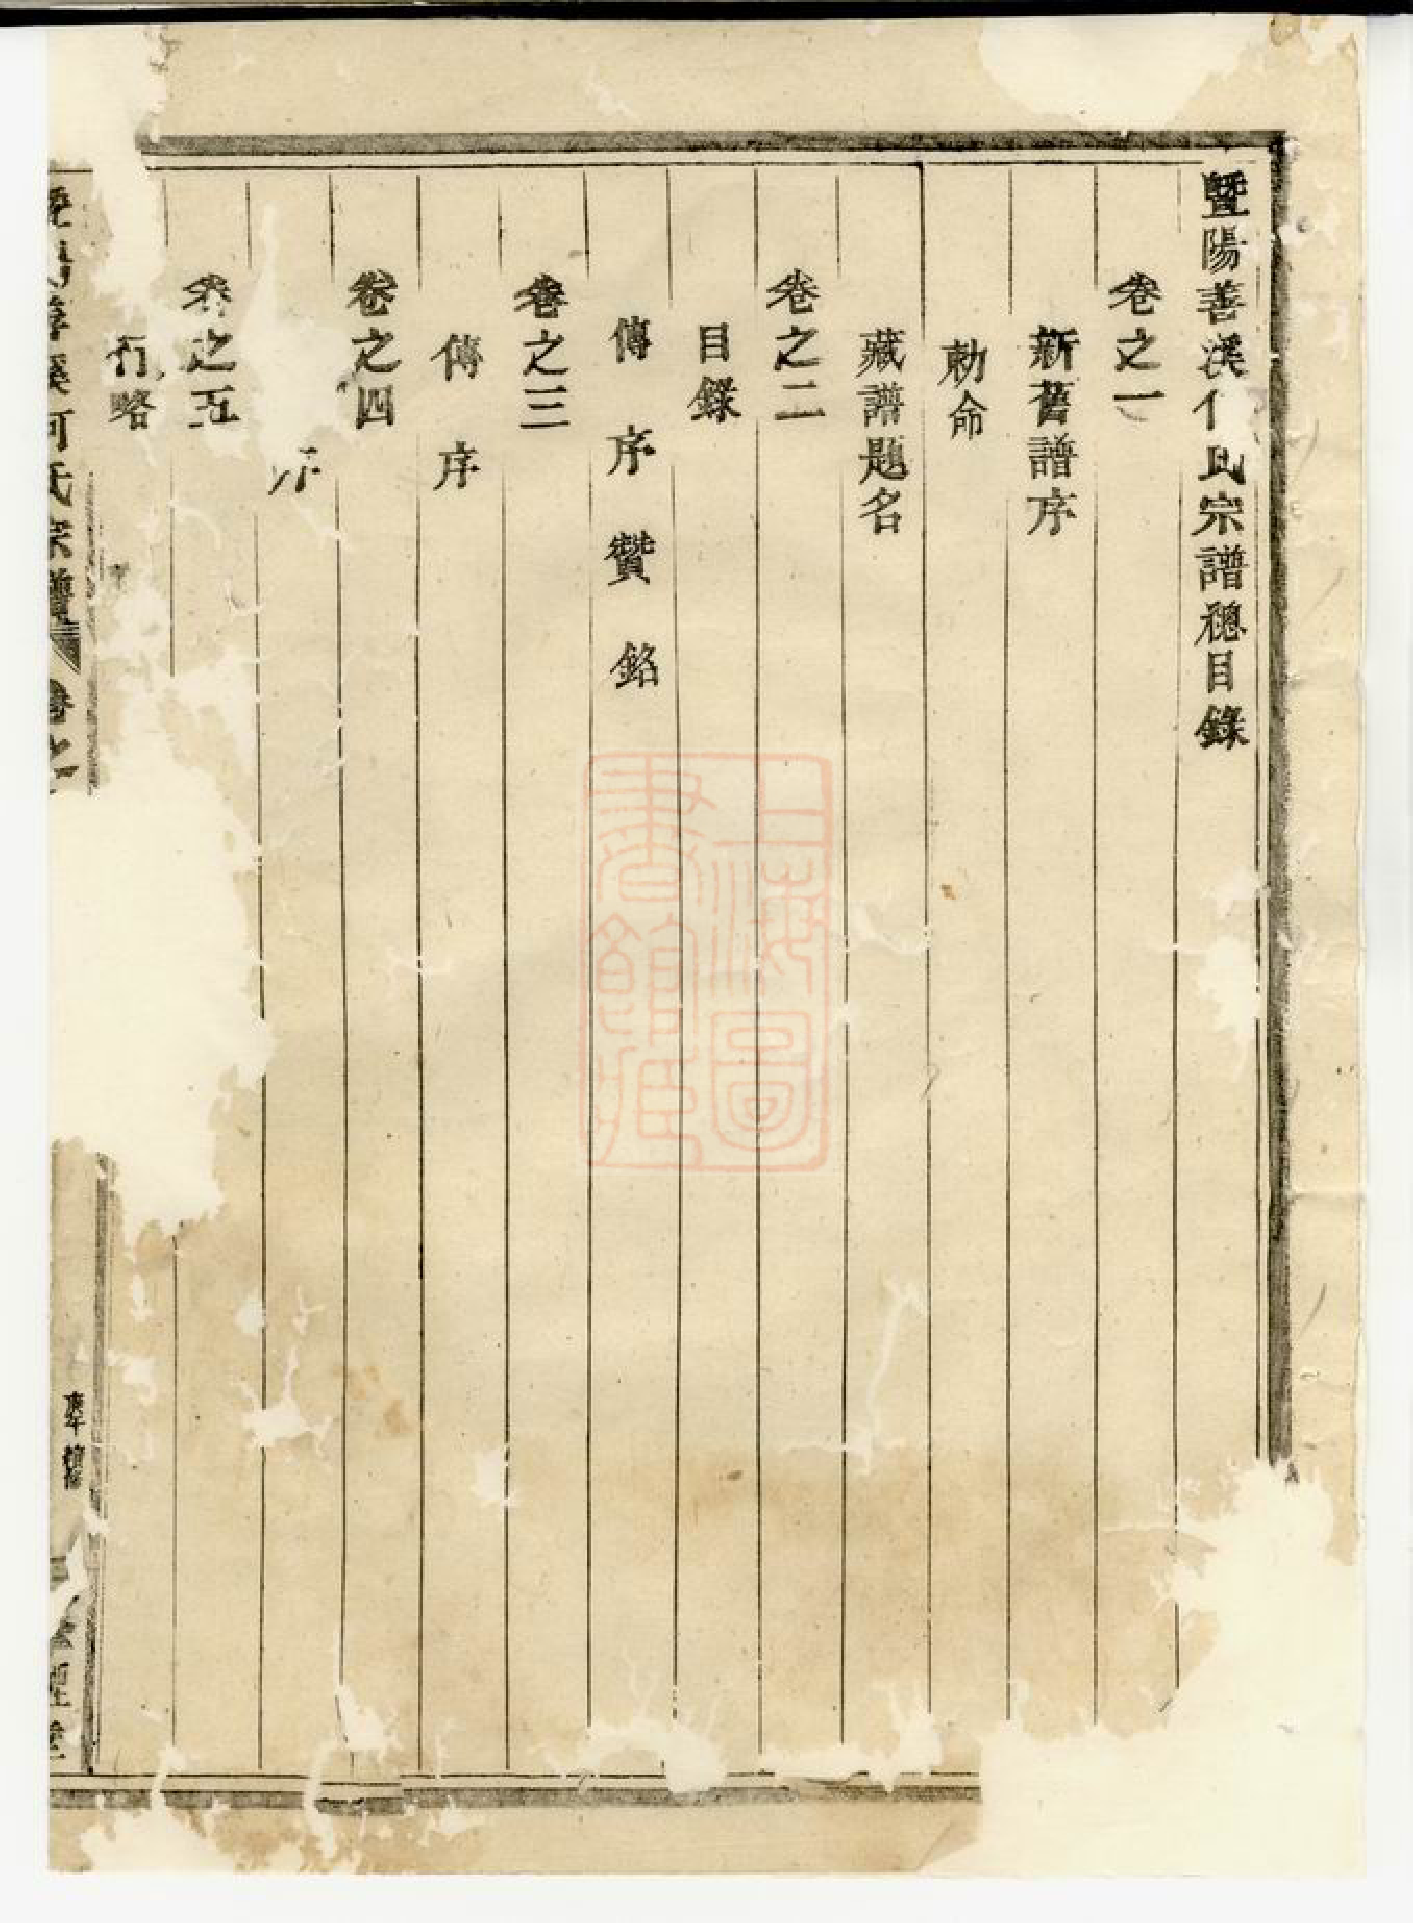 暨陽善溪何氏宗譜總目錄
卷之一
新舊譜序
勅命
藏譜題名
卷之二
目錄
傳序贊銘
卷之三
傳序
卷之四
序
卷之五
行略
善溪何氏宗譜
卷之
庚午
上海圖
書館藏